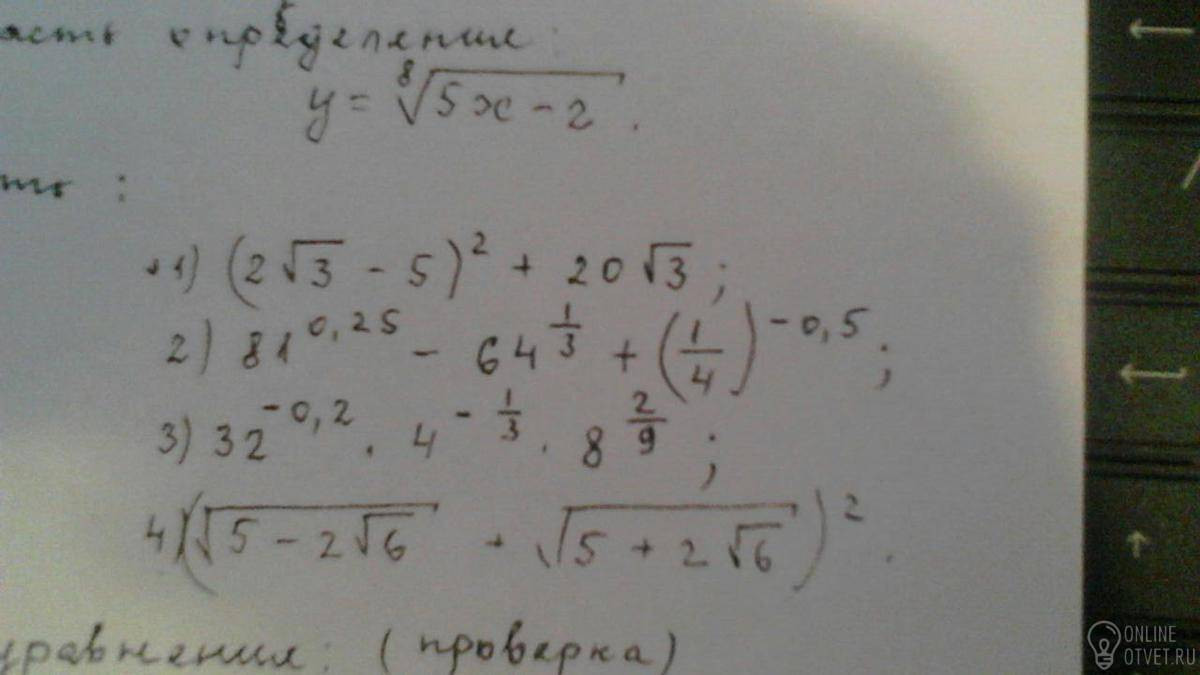 определения:
y = ⁸√(5x − 2).
1) (2√3 − 5)² + 20√3;
2) 81^0,25 − 64^(1/3) + (1/4)^(−0,5);
3) 32^(−0,2) · 4^(−1/3) · 8^(2/9);
4) (√(5 − 2√6) + √(5 + 2√6))².
уравнения: (проверка)
ONLINE
OTVET.RU